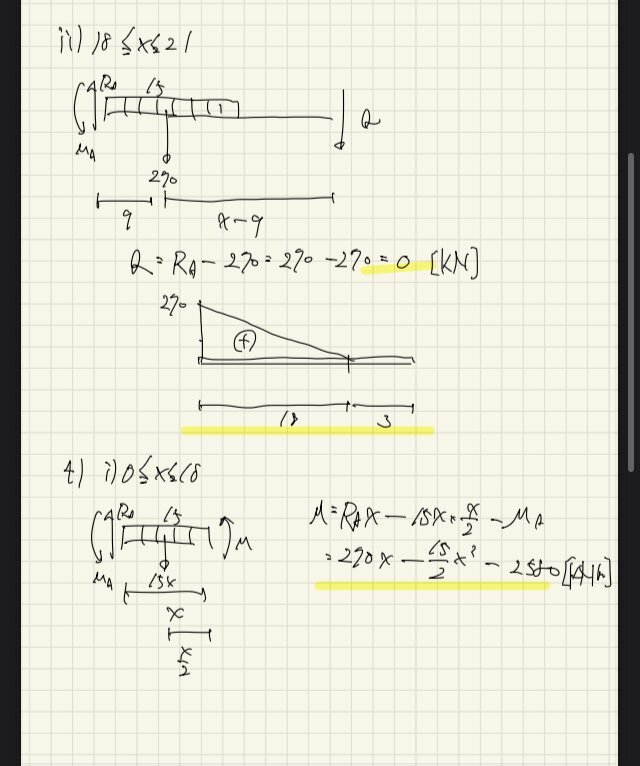 ii) 18 ≤ x ≤ 21
RA 15
MA
Q
270
9 x-9
Q = RA - 270 = 270 - 270 = 0 [kN]
270
(+)
18 3
4) i) 0 ≤ x ≤ 18
RA 15
M
MA
15x
x
x/2
M = RAx - 15x × x/2 - MA
= 270x - 15/2 x² -